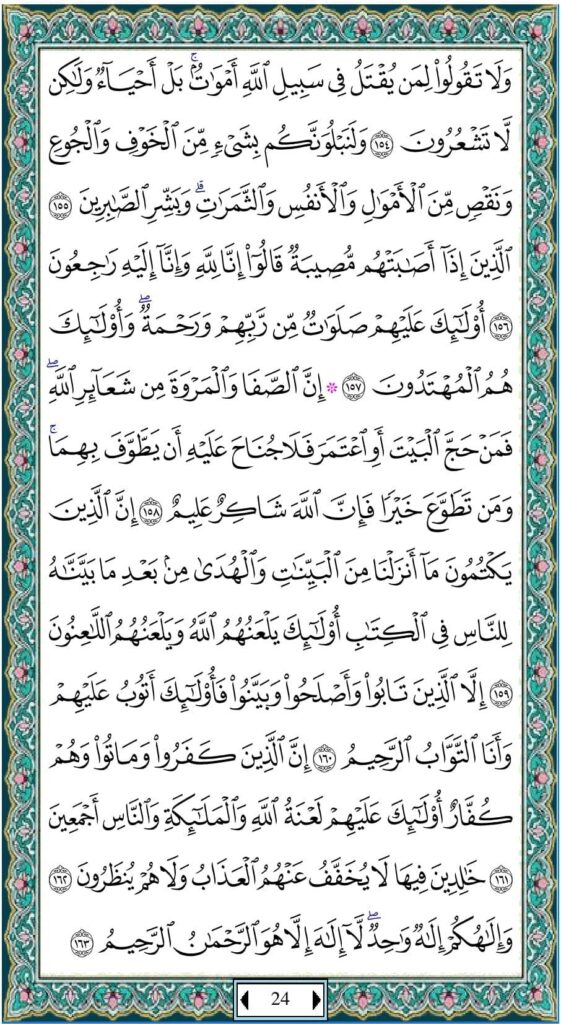 وَلَا تَقُولُوا۟ لِمَن يُقْتَلُ فِى سَبِيلِ ٱللَّهِ أَمْوَٰتٌۢ ۚ بَلْ أَحْيَآءٌ وَلَٰكِن
لَّا تَشْعُرُونَ ١٥٤ وَلَنَبْلُوَنَّكُم بِشَىْءٍ مِّنَ ٱلْخَوْفِ وَٱلْجُوعِ
وَنَقْصٍ مِّنَ ٱلْأَمْوَٰلِ وَٱلْأَنفُسِ وَٱلثَّمَرَٰتِ ۗ وَبَشِّرِ ٱلصَّٰبِرِينَ ١٥٥
ٱلَّذِينَ إِذَآ أَصَٰبَتْهُم مُّصِيبَةٌ قَالُوٓا۟ إِنَّا لِلَّهِ وَإِنَّآ إِلَيْهِ رَٰجِعُونَ
١٥٦ أُو۟لَٰٓئِكَ عَلَيْهِمْ صَلَوَٰتٌ مِّن رَّبِّهِمْ وَرَحْمَةٌ ۖ وَأُو۟لَٰٓئِكَ
هُمُ ٱلْمُهْتَدُونَ ١٥٧ * إِنَّ ٱلصَّفَا وَٱلْمَرْوَةَ مِن شَعَآئِرِ ٱللَّهِ ۖ
فَمَنْ حَجَّ ٱلْبَيْتَ أَوِ ٱعْتَمَرَ فَلَا جُنَاحَ عَلَيْهِ أَن يَطَّوَّفَ بِهِمَا ۚ
وَمَن تَطَوَّعَ خَيْرًا فَإِنَّ ٱللَّهَ شَاكِرٌ عَلِيمٌ ١٥٨ إِنَّ ٱلَّذِينَ
يَكْتُمُونَ مَآ أَنزَلْنَا مِنَ ٱلْبَيِّنَٰتِ وَٱلْهُدَىٰ مِنۢ بَعْدِ مَا بَيَّنَّٰهُ
لِلنَّاسِ فِى ٱلْكِتَٰبِ أُو۟لَٰٓئِكَ يَلْعَنُهُمُ ٱللَّهُ وَيَلْعَنُهُمُ ٱللَّٰعِنُونَ
١٥٩ إِلَّا ٱلَّذِينَ تَابُوا۟ وَأَصْلَحُوا۟ وَبَيَّنُوا۟ فَأُو۟لَٰٓئِكَ أَتُوبُ عَلَيْهِمْ
وَأَنَا ٱلتَّوَّابُ ٱلرَّحِيمُ ١٦٠ إِنَّ ٱلَّذِينَ كَفَرُوا۟ وَمَاتُوا۟ وَهُمْ
كُفَّارٌ أُو۟لَٰٓئِكَ عَلَيْهِمْ لَعْنَةُ ٱللَّهِ وَٱلْمَلَٰٓئِكَةِ وَٱلنَّاسِ أَجْمَعِينَ
١٦١ خَٰلِدِينَ فِيهَا لَا يُخَفَّفُ عَنْهُمُ ٱلْعَذَابُ وَلَا هُمْ يُنظَرُونَ ١٦٢
وَإِلَٰهُكُمْ إِلَٰهٌ وَٰحِدٌ ۖ لَّآ إِلَٰهَ إِلَّا هُوَ ٱلرَّحْمَٰنُ ٱلرَّحِيمُ ١٦٣
24